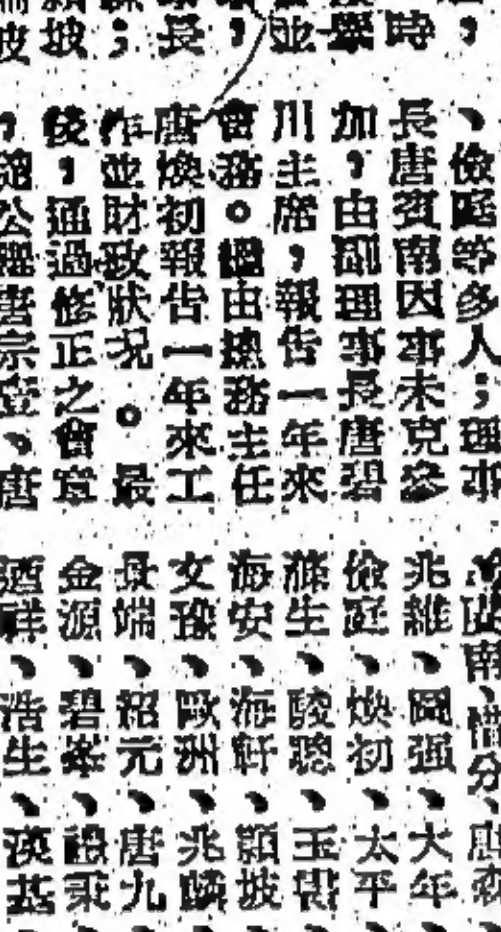 ，
時
舉
並
，
長
；
坡
坡
、儉庭等多人；理事
長唐賓南因事未克參
加，由副理事長唐碧
川主席，報告一年來
會務。繼由總務主任
唐煥初報告一年來工
作並財政狀况。最
後，通過修正之會章
，公唐宗、唐
南、惜分、唐
兆維、國强、大年、
儉庭、煥初、太平、
滌生、聰、玉、
海安、海軒、顯坡、
文豫、歐洲、兆麟、
景端、紹元、唐九、
金源、碧峯、秉、
祥、浩生、漢基、